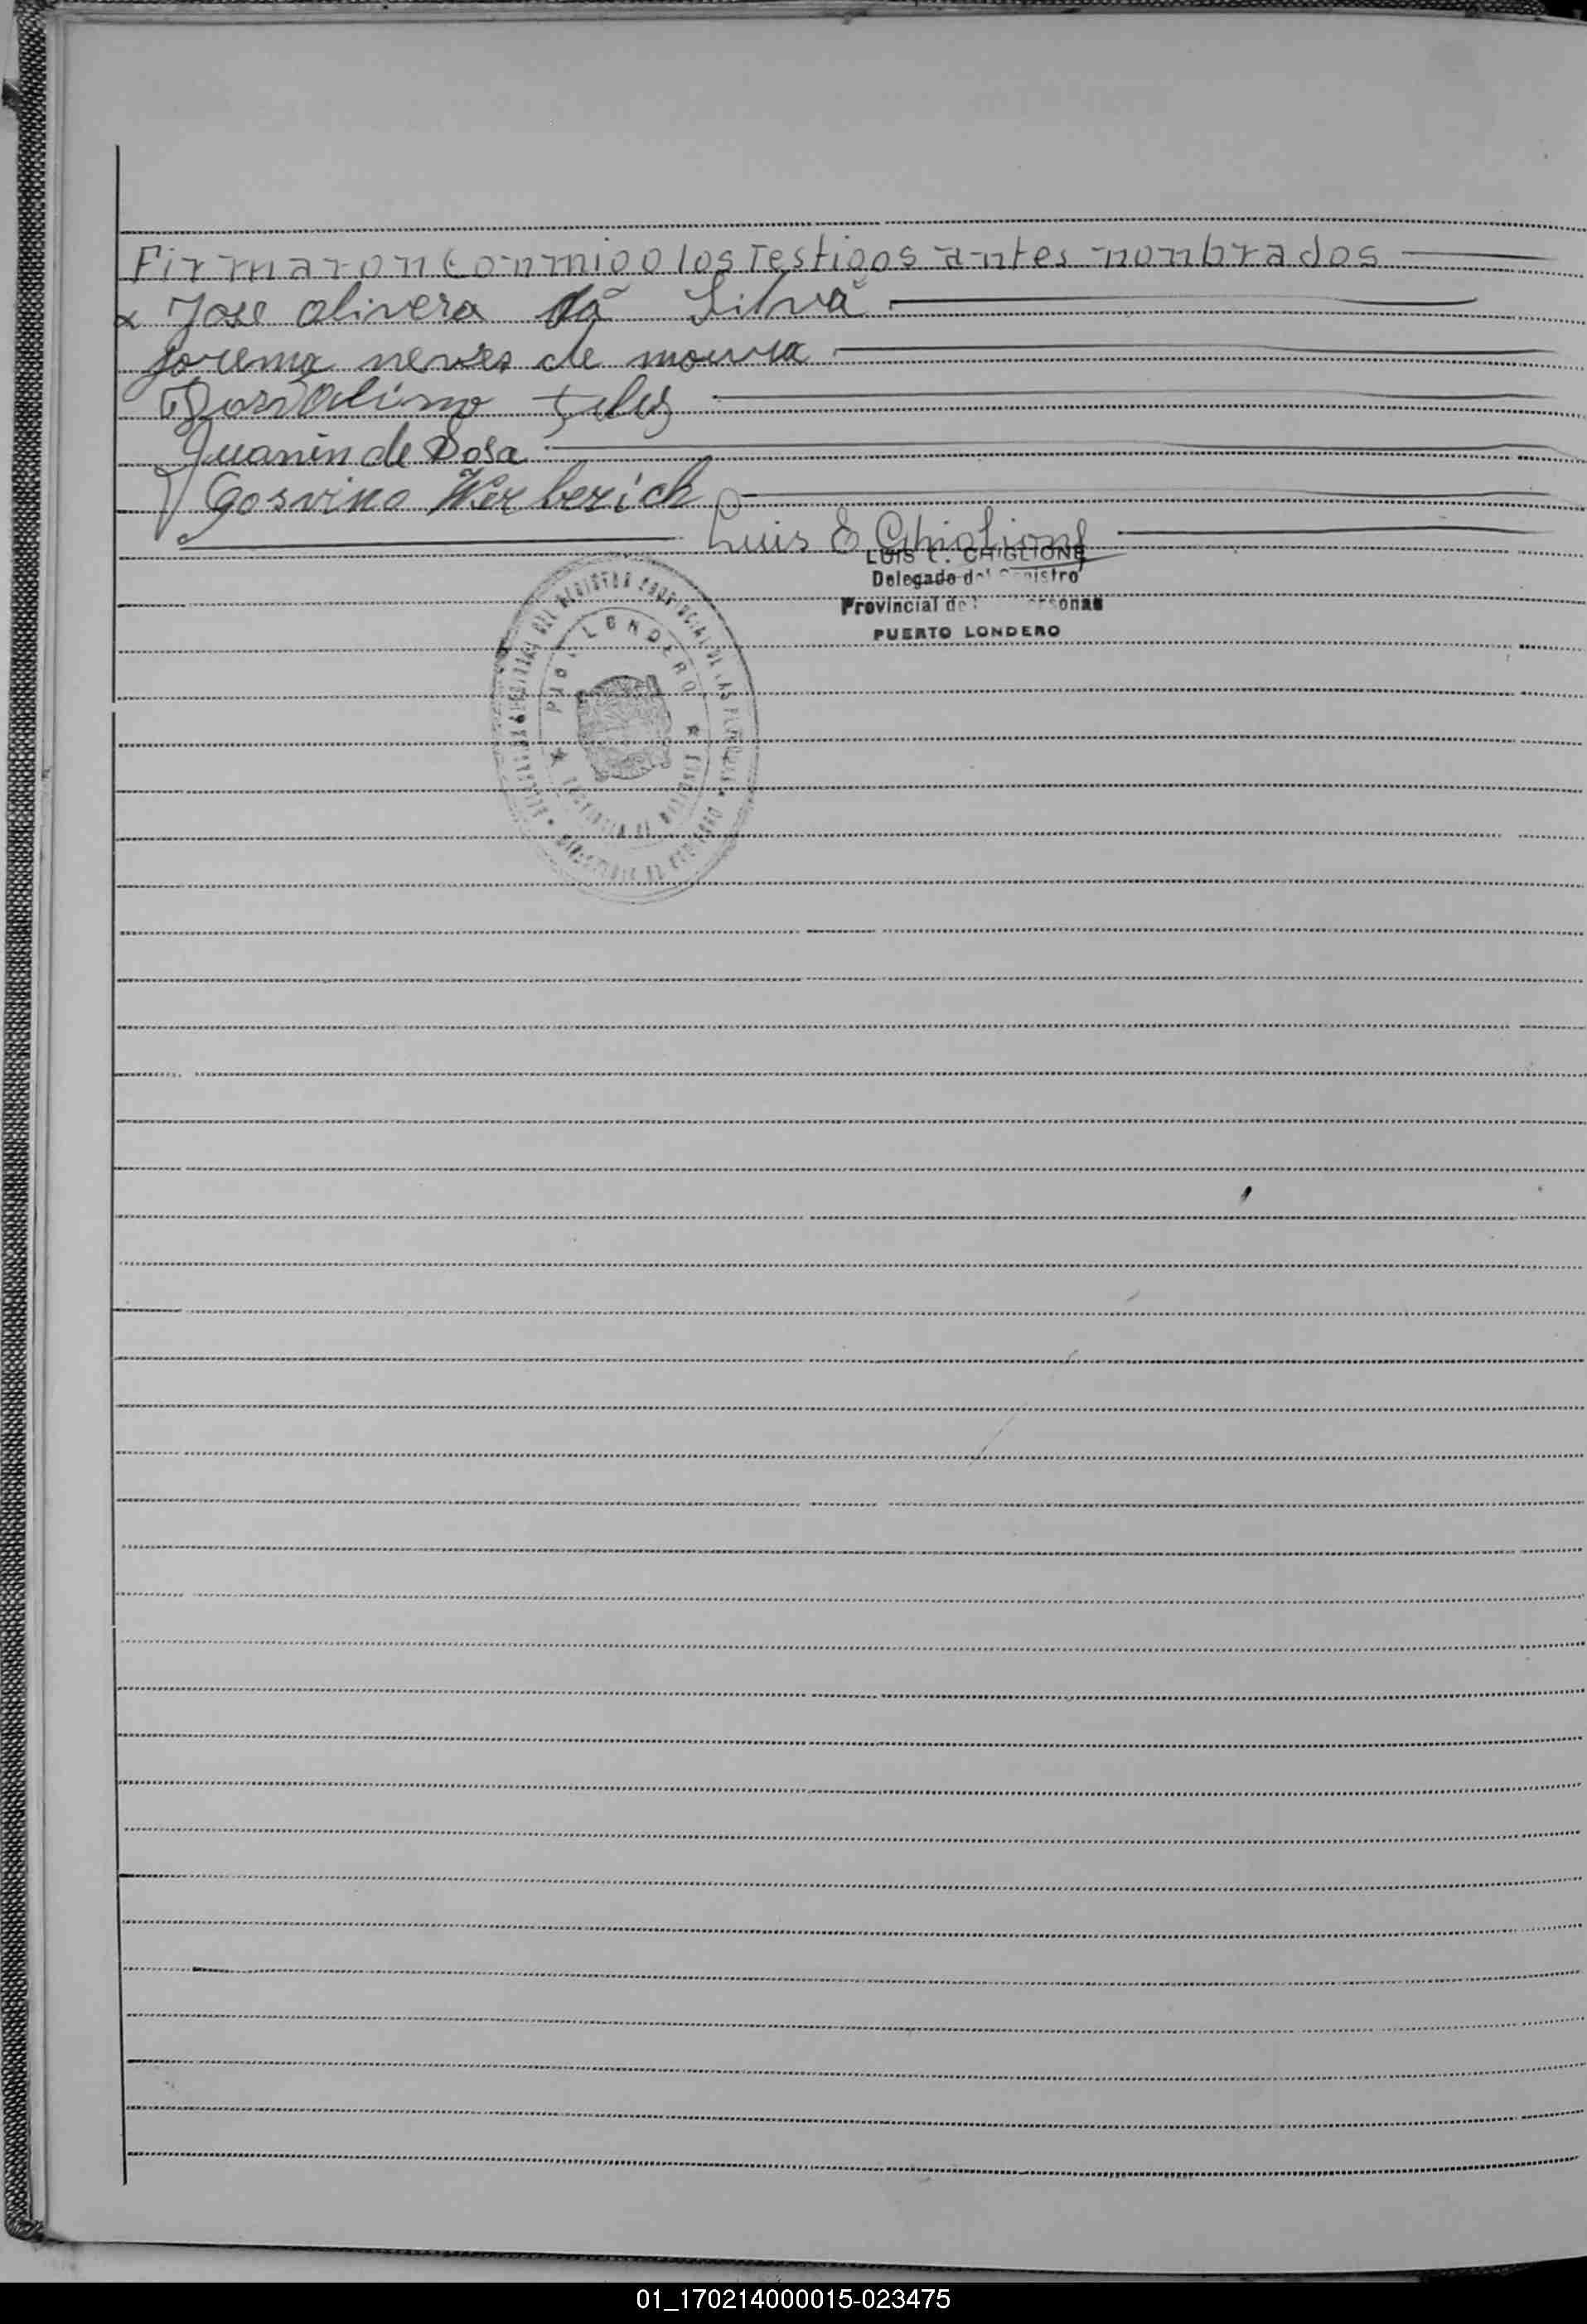 Firmaron conmigo los Testigos antes nombrados
x Jose olivera da Silva
jorema neves de moura
Juanin de Sosa
Gosvino Werberich
Luis E Ghiglione
LUIS E. GHIGLIONE
Delegado del Registro
Provincial de Personas
PUERTO LONDERO
PTO. LONDERO
01_170214000015-023475